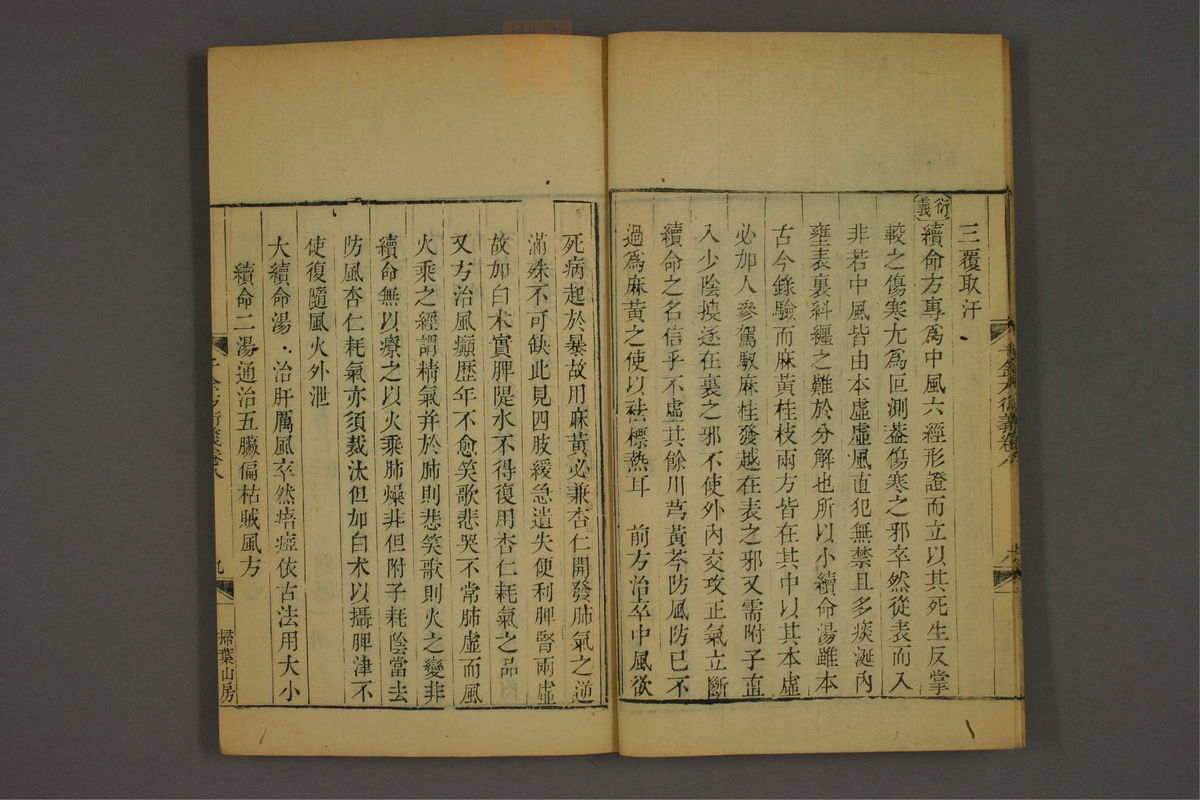 三覆取汗
衍義
續命方專為中風六經形證而立以其死生反掌
較之傷寒尤為叵測葢傷寒之邪卒然從表而入
非若中風皆由本虛虛風直犯無禁且多痰涎內
壅表裏糾纒之難於分解也所以小續命湯雖本
古今錄驗而麻黃桂枝兩方皆在其中以其本虛
必加人參駕馭麻桂發越在表之邪又需附子直
入少陰搜逐在裏之邪不使外內交攻正氣立斷
續命之名信乎不虛其餘川芎黃芩防風防巳不
過為麻黃之使以祛標熱耳　前方治卒中風欲
死病起於暴故用麻黃必兼杏仁開發肺氣之逆
滿殊不可缺此見四肢緩急遺失便利脾腎兩虛
故加白术實脾隄水不得復用杏仁耗氣之品
又方治風癲歷年不愈笑歌悲哭不常肺虛而風
火乘之經謂精氣并於肺則悲笑歌則火之變非
續命無以療之以火乘肺燥非但附子耗陰當去
防風杏仁耗氣亦須裁汰但加白术以攝脾津不
使復隨風火外泄
大續命湯．治肝厲風卒然瘖瘂依古法用大小
續命二湯通治五臟偏枯賊風方
千金方衍義卷八
九
掃葉山房